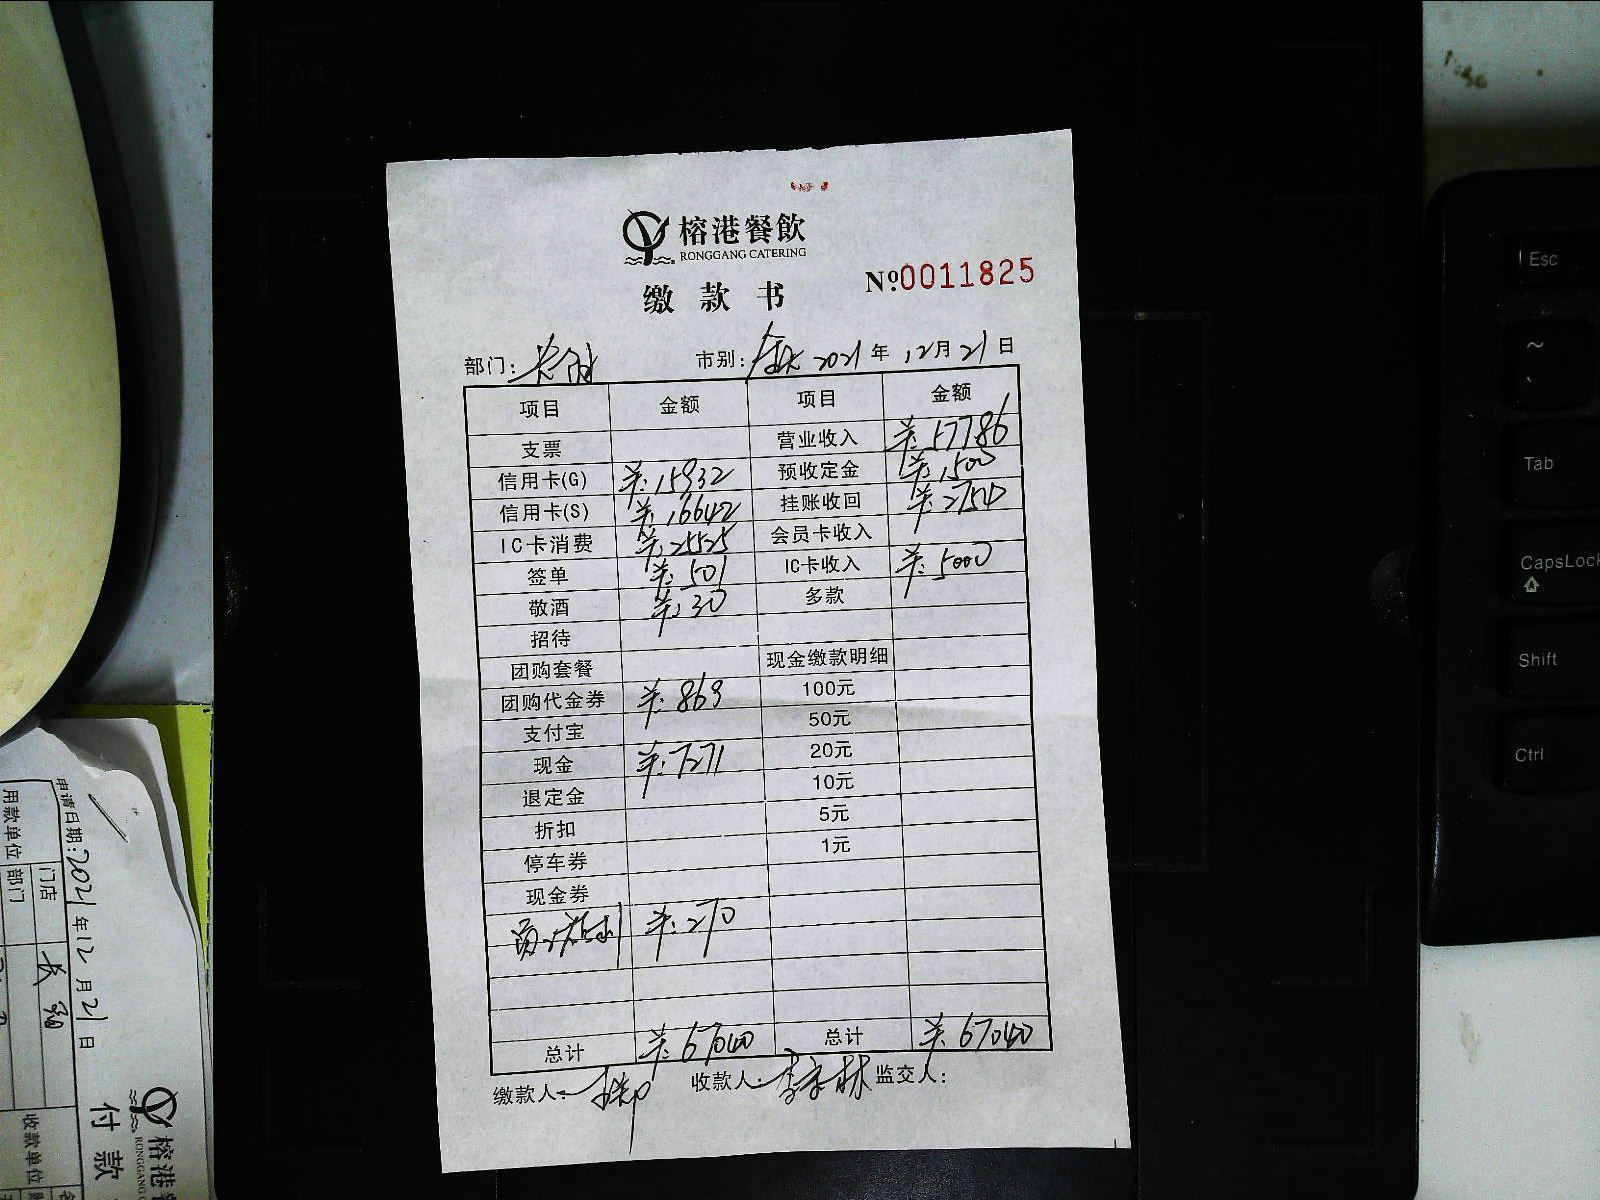 榕港餐飲
RONGGANG CATERING
缴款书
№0011825
部门: 市别: 2021年12月21日
项目 金额 项目 金额
支票 营业收入 ¥:57786
信用卡(G) ¥:15932 预收定金 ¥:1500
信用卡(S) ¥:16642 挂账收回 ¥:2754
IC卡消费 ¥:25525 会员卡收入
签单 ¥:501 IC卡收入 ¥:5000
敬酒 ¥:30 多款
招待
团购套餐 现金缴款明细
团购代金券 ¥:869 100元
支付宝 50元
现金 ¥:7271 20元
退定金 10元
折扣 5元
停车券 1元
现金券
¥:270
总计 ¥:67040 总计 ¥:67040
缴款人: 收款人: 监交人:
申请日期:2021年12月21日
用款单位 门店
部门
收款单位
榕港餐
付款
Esc
~
Tab
CapsLock
Shift
Ctrl